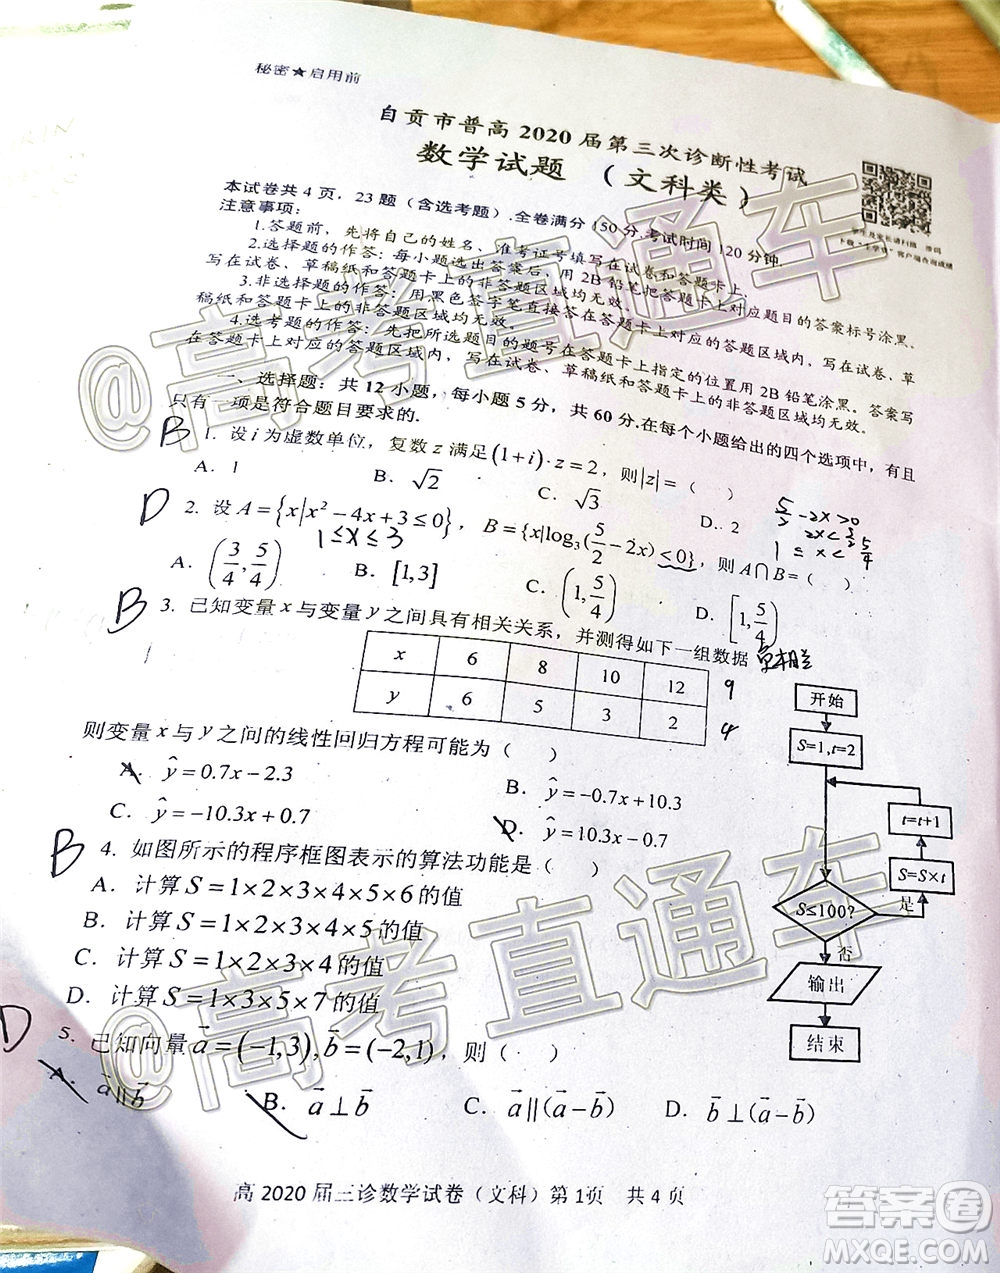 秘密★启用前
自贡市普高2020届第三次诊断性考试
数学试题 （文科类）
本试卷共4页，23题（含选考题）.全卷满分150分.考试时间120分钟.
注意事项：
1.答题前，先将自己的姓名、准考证号填写在试卷和答题卡上.
2.选择题的作答：每小题选出答案后，用2B铅笔把答题卡上对应题目的答案标号涂黑。
写在试卷、草稿纸和答题卡上的非答题区域均无效。
3.非选择题的作答：用黑色签字笔直接答在答题卡上对应的答题区域内。写在试卷、草
稿纸和答题卡上的非答题区域均无效。
4.选考题的作答：先把所选题目的题号在答题卡上指定的位置用2B铅笔涂黑。答案写
在答题卡上对应的答题区域内，写在试卷、草稿纸和答题卡上的非答题区域均无效。
一、选择题：共12小题，每小题5分，共60分.在每个小题给出的四个选项中，有且
只有一项是符合题目要求的.
B 1. 设i为虚数单位，复数z满足(1+i)·z=2，则|z|=（ ）
A. 1 B. √2 C. √3 D. 2
D 2. 设A={x|x²-4x+3≤0}，B={x|log₃(5/2-2x)≤0}，则A∩B=（ ）
1≤x≤3
5/2-2x>0
A. (3/4, 5/4) B. [1,3] C. (1, 5/4) D. [1, 5/4)
B 3. 已知变量x与变量y之间具有相关关系，并测得如下一组数据
x 6 8 10 12 9
y 6 5 3 2 4
则变量x与y之间的线性回归方程可能为（ ）
A. ŷ=0.7x-2.3 B. ŷ=-0.7x+10.3
C. ŷ=-10.3x+0.7 D. ŷ=10.3x-0.7
B 4. 如图所示的程序框图表示的算法功能是（ ）
A. 计算S=1×2×3×4×5×6的值
B. 计算S=1×2×3×4×5的值
C. 计算S=1×2×3×4的值
D. 计算S=1×3×5×7的值
开始
S=1,t=2
t=t+1
S=S×t
S≤100?
是
否
输出
结束
D 5. 已知向量a⃗=(-1,3),b⃗=(-2,1)，则（ ）
A. a⃗∥b⃗ B. a⃗⊥b⃗ C. a⃗∥(a⃗-b⃗) D. b⃗⊥(a⃗-b⃗)
高2020届三诊数学试卷（文科）第1页 共4页
@高考直通车
@高考直通车
答案卷
MXQE.COM